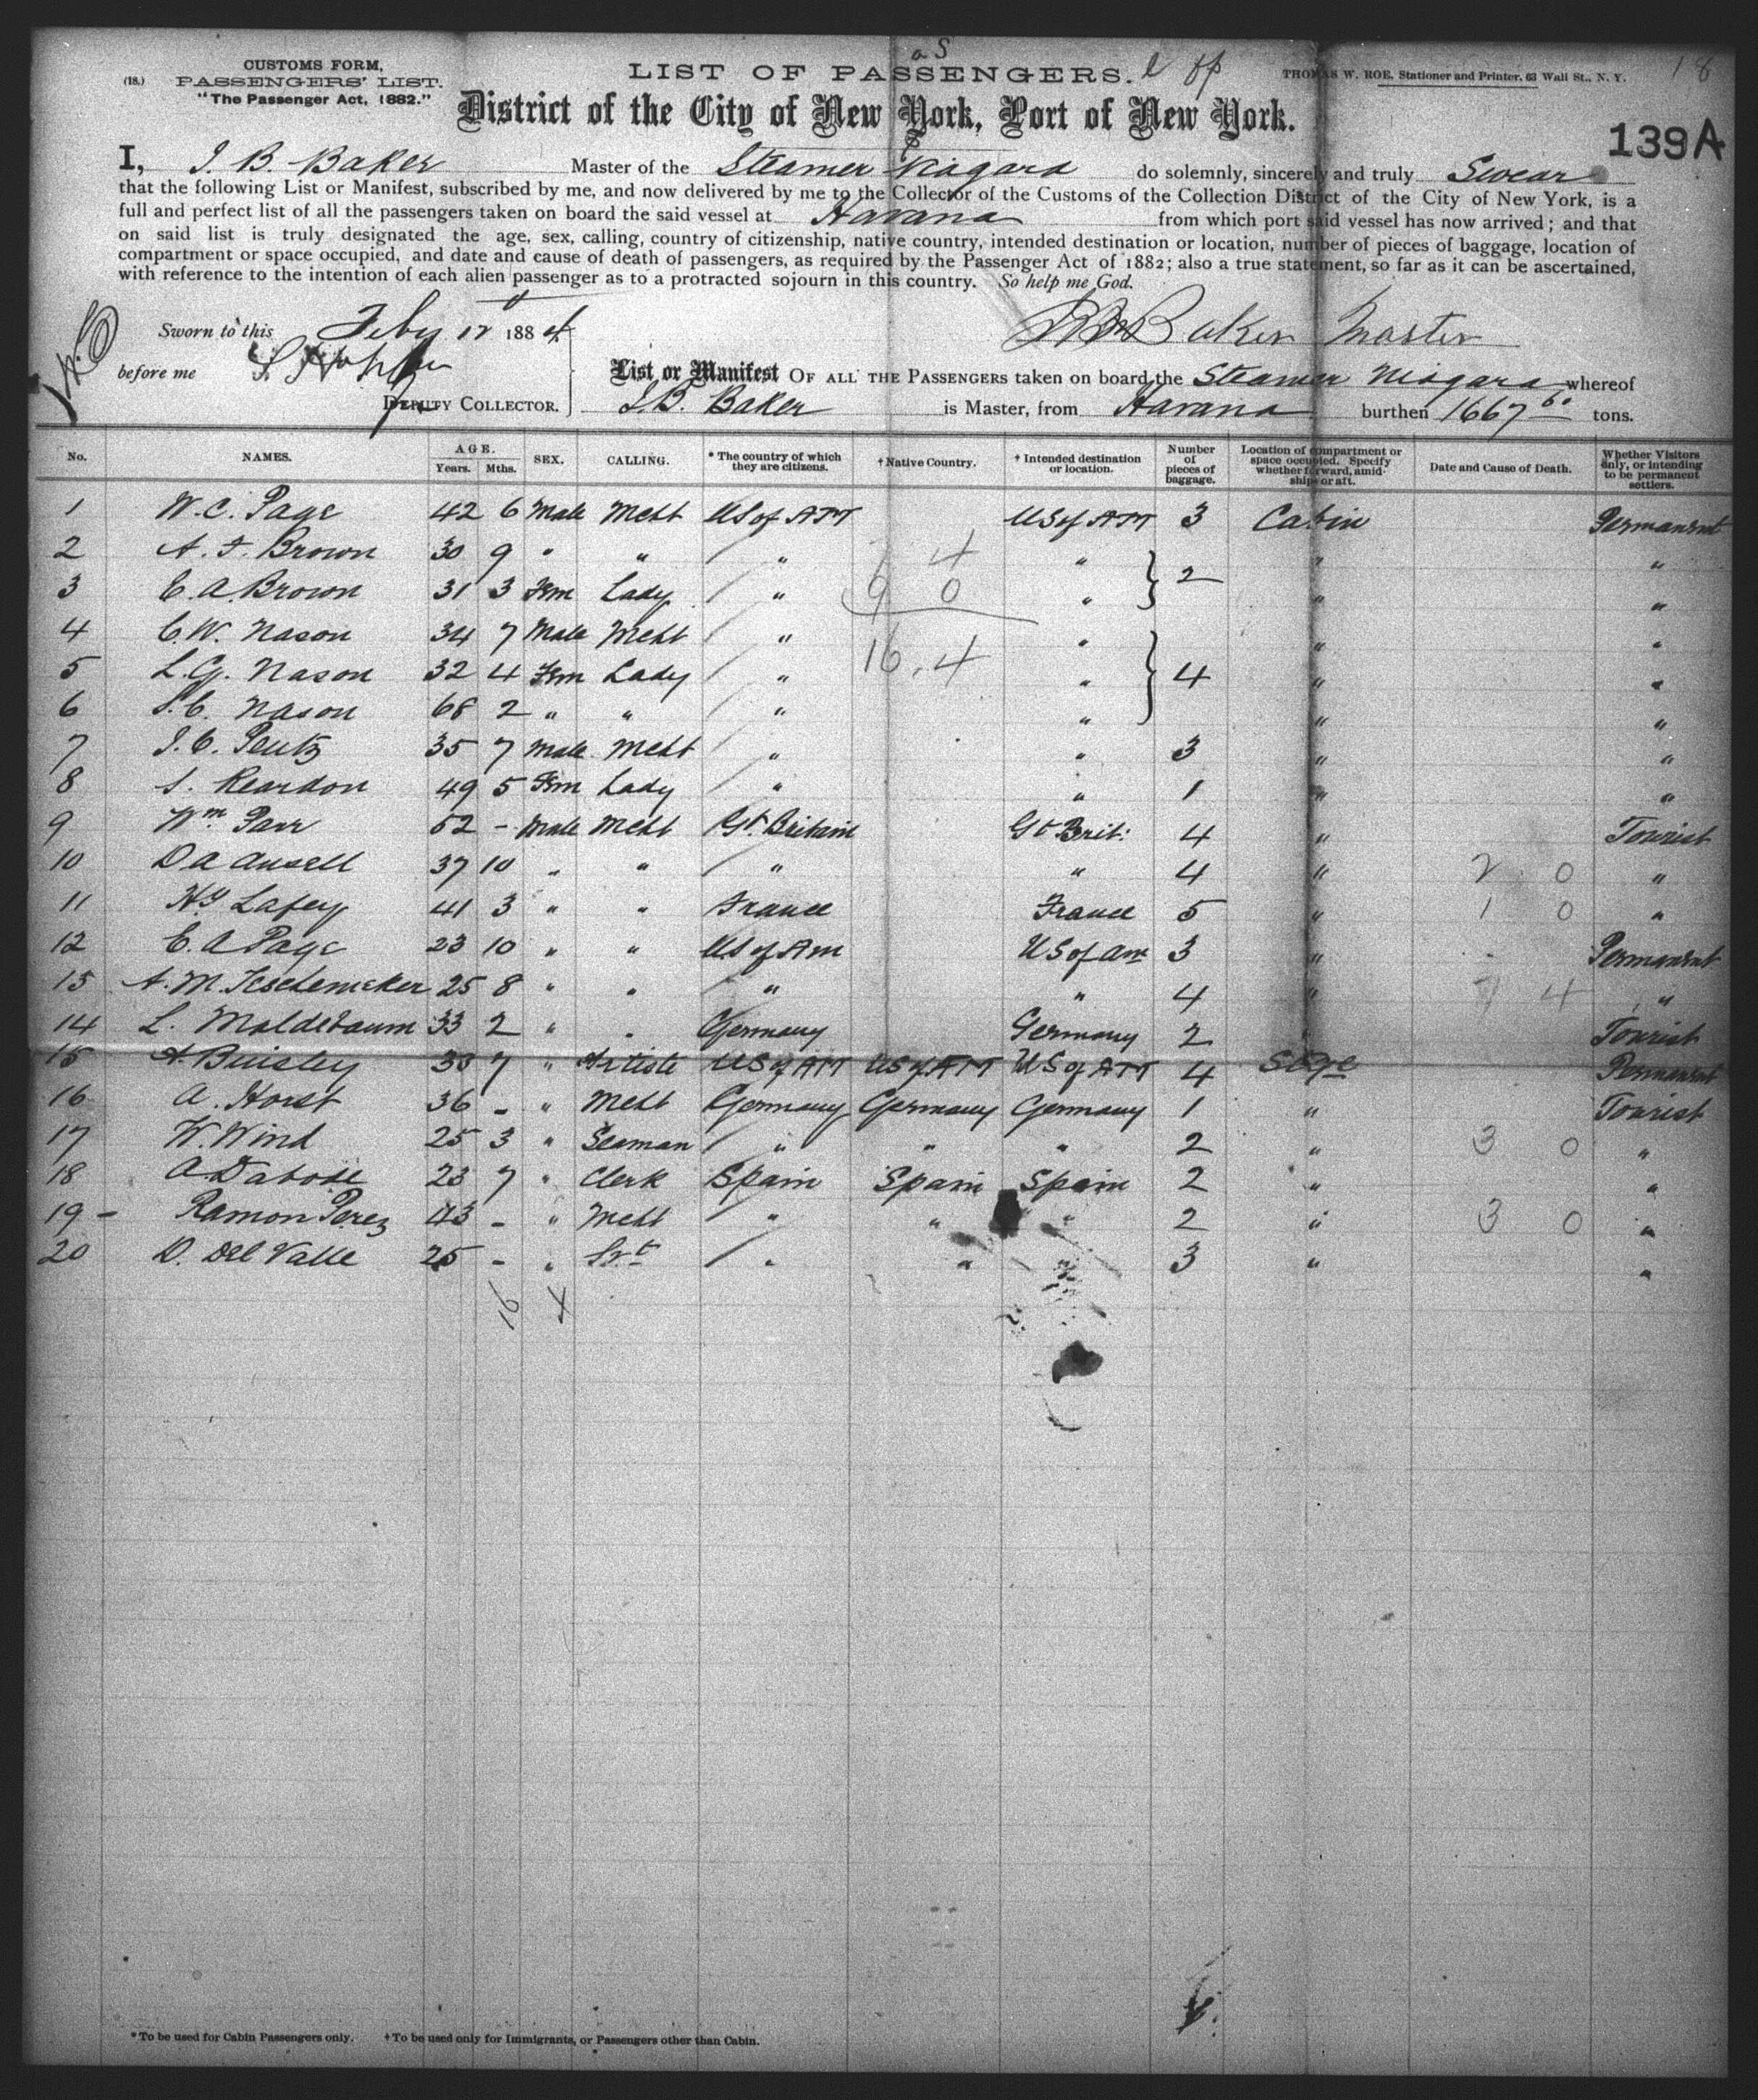 (18.) CUSTOMS FORM, PASSENGERS' LIST. "The Passenger Act, 1882."
LIST OF PASSENGERS.
THOMAS W. ROE, Stationer and Printer, 63 Wall St., N. Y.
18
District of the City of New York, Port of New York.
139A
I, J. B. Baker Master of the Steamer Niagara do solemnly, sincerely and truly Swear
that the following List or Manifest, subscribed by me, and now delivered by me to the Collector of the Customs of the Collection District of the City of New York, is a
full and perfect list of all the passengers taken on board the said vessel at Havana from which port said vessel has now arrived; and that
on said list is truly designated the age, sex, calling, country of citizenship, native country, intended destination or location, number of pieces of baggage, location of
compartment or space occupied, and date and cause of death of passengers, as required by the Passenger Act of 1882; also a true statement, so far as it can be ascertained,
with reference to the intention of each alien passenger as to a protracted sojourn in this country. So help me God.
Sworn to this Feby 12 1884 Baker Master
before me
DEPUTY COLLECTOR.
List or Manifest OF ALL THE PASSENGERS taken on board the Steamer Niagara whereof
J.B. Baker is Master, from Havana burthen 1667 60 tons.
No. NAMES. AGE. Years. Mths. SEX. CALLING. * The country of which they are citizens. † Native Country. † Intended destination or location. Number of pieces of baggage. Location of compartment or space occupied. Specify whether forward, amidships or aft. Date and Cause of Death. Whether Visitors only, or intending to be permanent settlers.
1 W. C. Page 42 6 Male Mcht US of AM US of AM 3 Cabin Permanent
2 A. F. Brown 30 9 " " " " " "
3 E. A. Brown 31 3 Fem Lady " " 2 " "
4 C. W. Nason 34 7 Male Mcht " " " "
5 L. G. Nason 32 4 Fem Lady " " 4 " "
6 S. C. Nason 68 2 " " " " " "
7 J. C. Pentz 35 7 Male Mcht " " 3 " "
8 S. Reardon 49 5 Fem Lady " " 1 " "
9 Wm. Parr 52 - Male Mcht Gt. Britain Gt Brit: 4 " Tourist
10 D A Ansell 37 10 " " " " 4 " "
11 Hy Lafery 41 3 " " France France 5 " "
12 E. A Page 23 10 " " US of Am US of Am 3 " Permanent
15 A. M. Teschemeker 25 8 " " " " 4 " "
14 L. Maldebaum 33 2 " " Germany Germany 2 " Tourist
15 A. Buisley 30 7 " Artiste US of AM US of AM US of AM 4 Stge Permanent
16 A. Horst 36 - " Mcht Germany Germany Germany 1 " Tourist
17 W. Wind 25 3 " Seaman " " " 2 " "
18 A. Dabose 23 7 " Clerk Spain Spain Spain 2 " "
19 - Ramon Perez 43 - " Mcht " " " 2 " "
20 D. Del Valle 25 - " " " " 3 " "
16 4
* To be used for Cabin Passengers only. † To be used only for Immigrants, or Passengers other than Cabin.